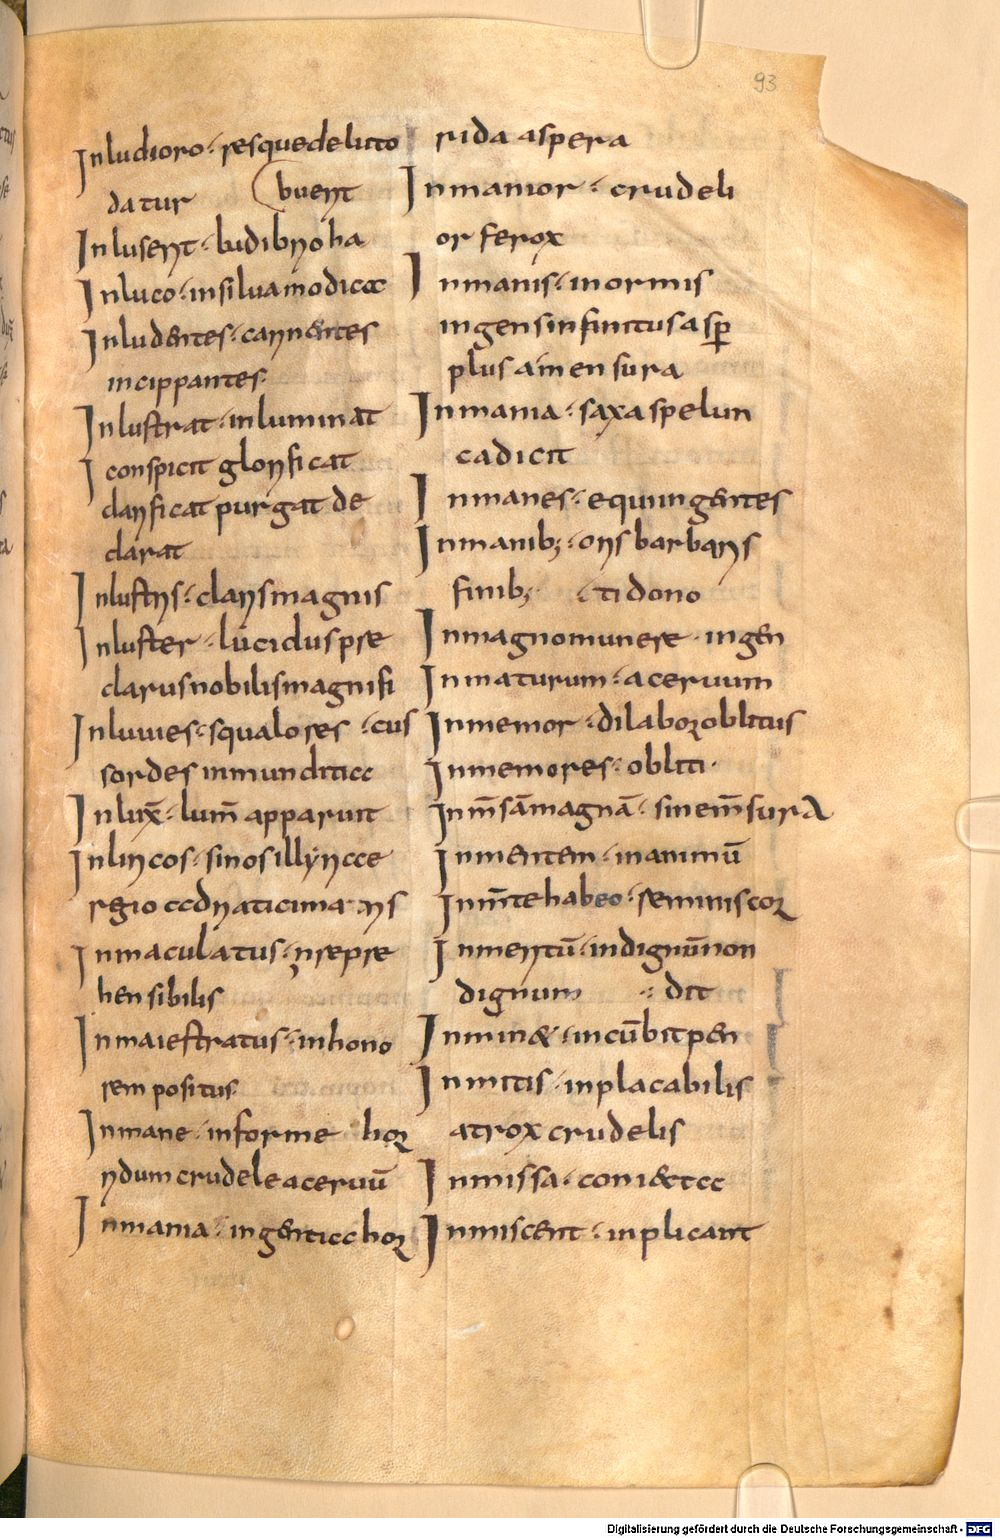 93
Inludioro · resquedelicto
datur buent
Inluserit · ludibrio ha
Inluco · insilua modica
Inludentes · carinentes
incippantes
Inlustrat · inluminat
conspicit glorificat
clarificat purgat de
clarat
Inlustris · claris magnis
Inluster · lucidus pre
clarus nobilis magnifi
Inluuies · squalores · cus
sordes inmunditia
Inlux̄ · lum̄ apparuit
Inliricos · sinos illyricæ
regio adriatici maris
Inmaculatus · inrepre
hensibilis
Inmaiestratus · inhono
rem positus
Inmane · informe hor
ridum crudele aceruū
Inmania · ingentia hor
rida aspera
Inmanior · crudeli
or ferox
Inmanis · inormis
ingens infinitus asp
plus a mensura
Inmania · saxa spelun
ca dicit
Inmanes · equi ingentes
Inmanib; · oris barbaris
finib; · ti dono
Inmagno munere · ingen
Inmaturum · aceruum
Inmemor · dilabor oblitus
Inmemores · obliti ·
Inm̄sā magnā · sine m̄sura
Inmentem · in animū
Inm̄te habeo · reminiscor
Inmeritū · indignū non
dignum · dit
Inminet · incūbit pen
Inmitis · inplacabilis
atrox crudelis
Inmissa · coniecta
Inmiscent · inplicant
Digitalisierung gefördert durch die Deutsche Forschungsgemeinschaft - DFG